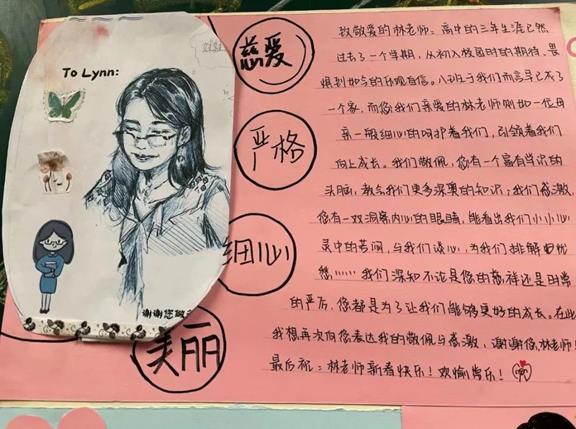 To Lynn:
谢谢您
慈爱
严格
细心
美丽
致敬爱的林老师：高中的三年生涯已然
过去了一个学期，从初入校园时的期待、畏
惧到如今的乐观自信。八班于我们而言早已不了
一个家，而您我们亲爱的林老师则如一位母
亲一般细心的呵护着我们，引领着我们
向上成长。我们敬佩，您有一个富有学识的
头脑，教会我们更多深奥的知识；我们感激，
您有一双洞察内心的眼睛，能看出我们小小心
灵中的苦闷，与我们谈心，为我们排解忧
愁……我们深知不论是您的慈祥还是日常
的严厉，您都是为了让我们能够更好的成长。在此
我想再次向您表达我的敬佩与感激，谢谢您林老师！
最后祝：林老师新春快乐！欢愉常乐！